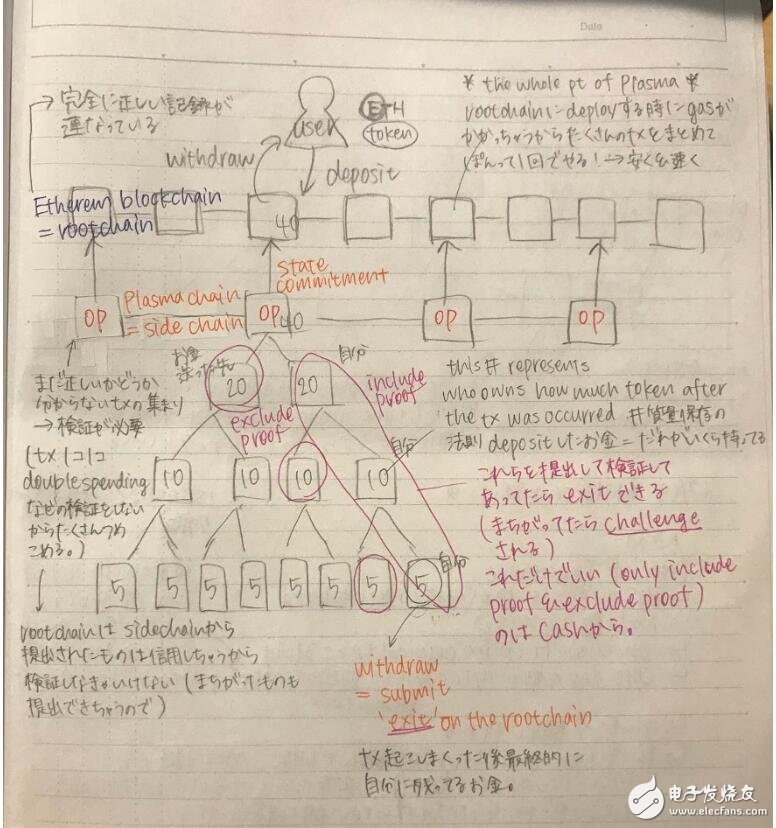 Date
完全に正しい記録が
連なっている
user
ETH
token
* the whole pt of Plasma *
rootchainにdeployする時にgasが
かかっちゃうからたくさんのtxをまとめて
ぽんって1回でやる!→安く&速く
withdraw
deposit
Etherem blockchain
= rootchain
40
state
commitment
OP
Plasma chain
= side chain
OP
40
OP
OP
まだ正しいかどうか
分からないtxの集まり
→検証が必要
(tx 1コ1コ
doublespending
などの検証をしない
からたくさんつめ
こめる。)
お金
送った先
自分
20
20
exclude
proof
include
proof
this # represents
who owns how much token after
the tx was occurred #質量保存の
法則 depositしたお金=だれがいくら持ってる
自分
10
10
10
10
これらを提出して検証して
あってたらexitできる
(まちがってたらchallenge
される)
これだけでいい (only include
proof & exclude proof)
のはCashから。
自分
5
5
5
5
5
5
5
5
rootchainはsidechainから
提出されたものは信用しちゃうから
検証しなきゃいけない (まちがったものも
提出できちゃうので)
withdraw
= submit
'exit' on the rootchain
tx起こしまくった後最終的に
自分に残ってるお金。
电子发烧友
www.elecfans.com